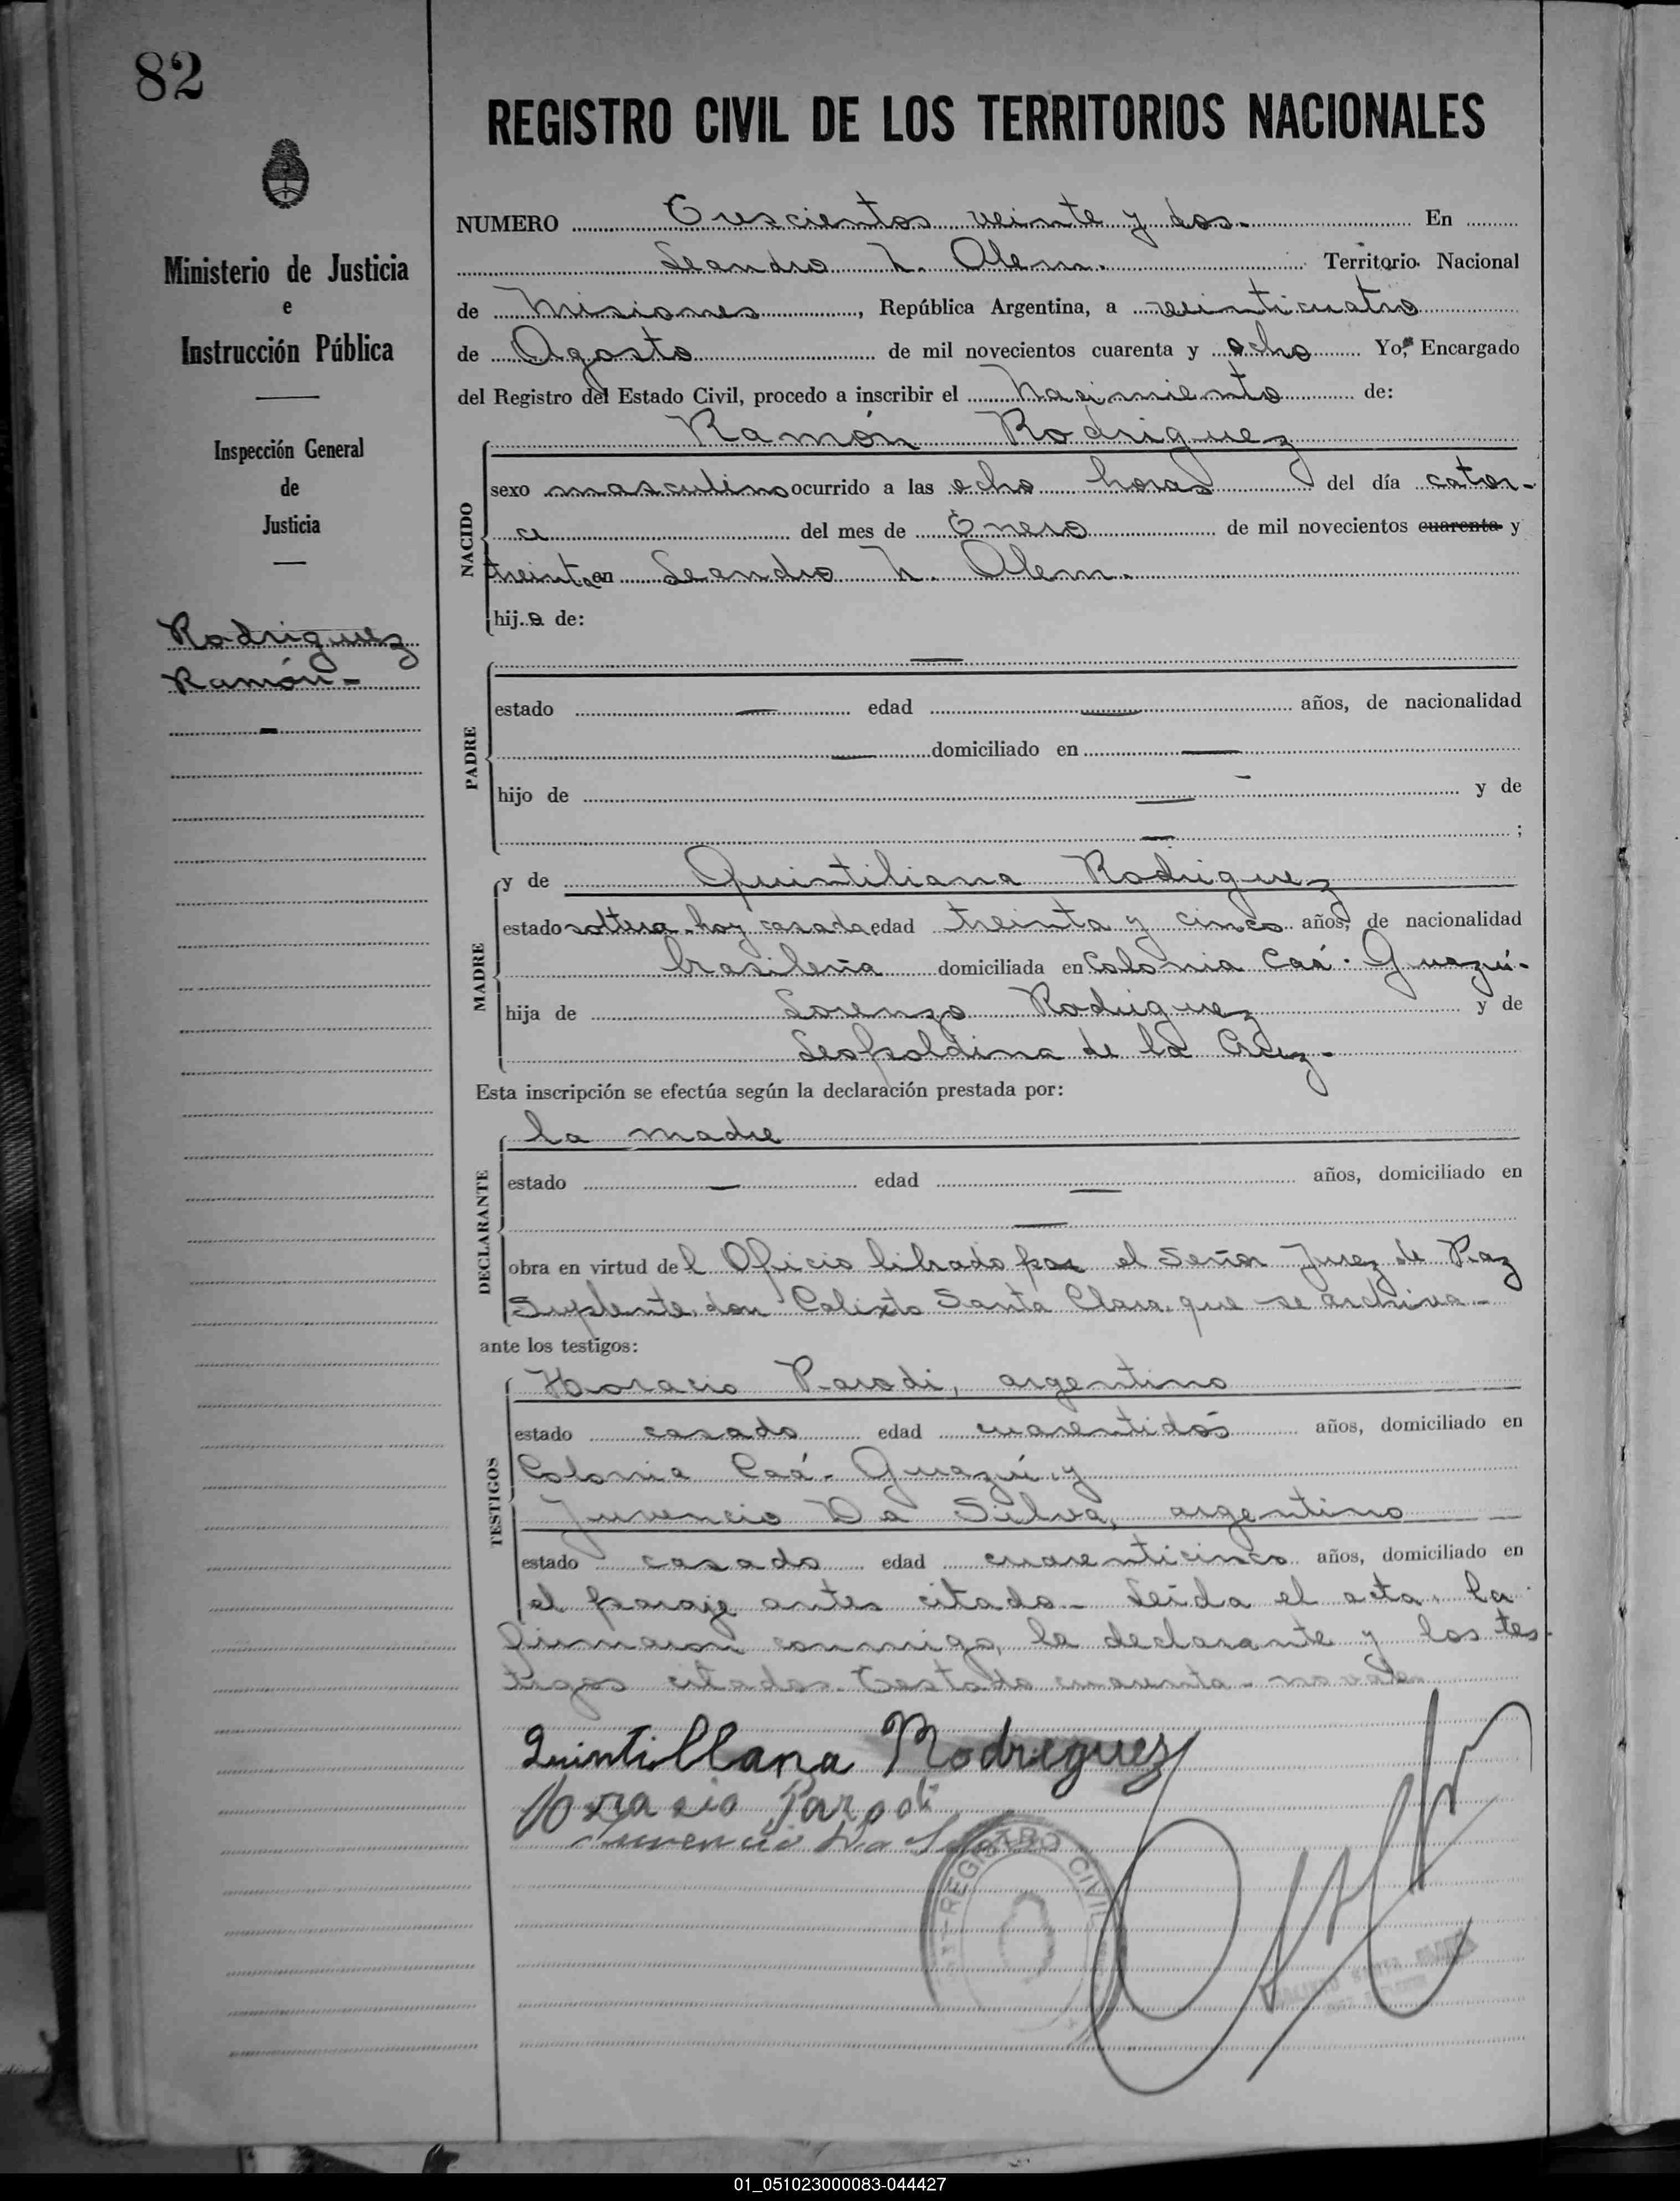 82
REGISTRO CIVIL DE LOS TERRITORIOS NACIONALES
Ministerio de Justicia
e
Instrucción Pública
Inspección General
de
Justicia
Rodriguez
Ramón -
NUMERO Trescientos veinte y dos. En
Leandro N. Alem. Territorio Nacional
de Misiones, República Argentina, a veinticuatro
de Agosto de mil novecientos cuarenta y ocho Yo, Encargado
del Registro del Estado Civil, procedo a inscribir el Nacimiento de:
Ramón Rodriguez
NACIDO
sexo masculino ocurrido a las ocho horas del día cator-
ce del mes de Enero de mil novecientos cuarenta y
treinta en Leandro N. Alem.
hijo de:
PADRE
estado — edad — años, de nacionalidad
— domiciliado en —
hijo de — y de
— ;
MADRE
y de Quintiliana Rodriguez
estado soltera-hoy casada edad treinta y cinco años, de nacionalidad
brasileña domiciliada en Colonia Caá-Guazú-
hija de Lorenzo Rodriguez y de
Leopoldina de la Cruz-
Esta inscripción se efectúa según la declaración prestada por:
DECLARANTE
la madre
estado — edad — años, domiciliado en
—
obra en virtud del Oficio librado por el Señor Juez de Paz
Suplente don Calixto Santa Clara, que se archiva-
ante los testigos:
TESTIGOS
Horacio Parodi, argentino
estado casado edad cuarentidós años, domiciliado en
Colonia Caá-Guazú y
Juvencio Da Silva, argentino
estado casado edad cuarenticinco años, domiciliado en
el paraje antes citado- Leída el acta, la
firmaron conmigo, la declarante y los tes-
tigos citados. Testado cuarenta- no vale.
Quintillana Rodreguez
Horasio Parodi
Juvencio Da
REGISTRO CIVIL
01_051023000083-044427